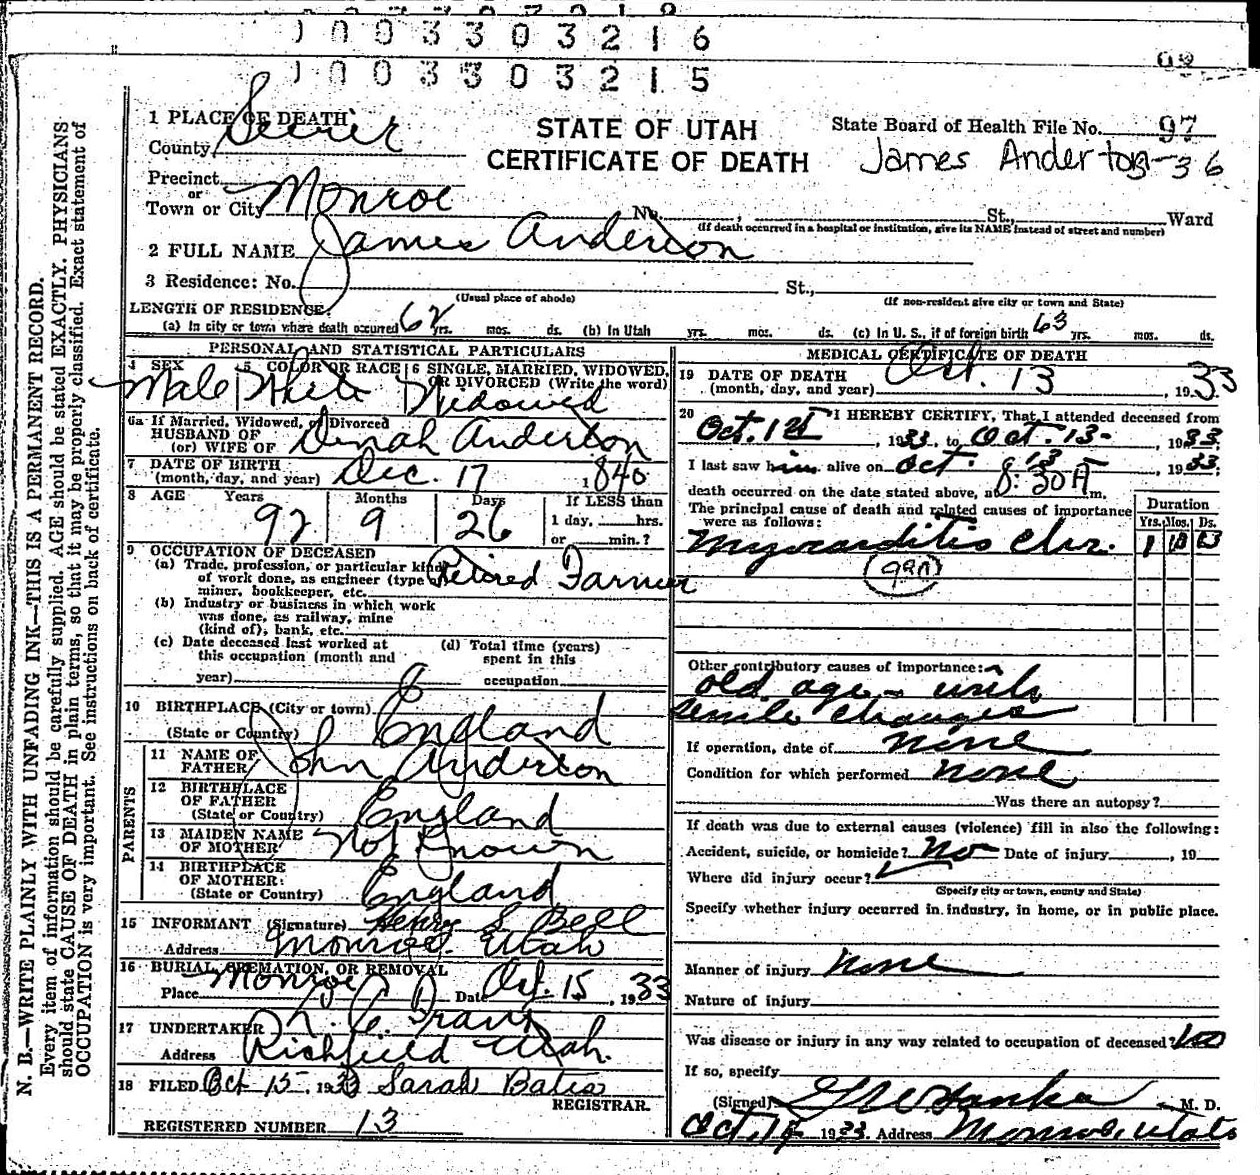 1 0 0 3 3 0 3 2 1 6
1 0 0 3 3 0 3 2 1 5
STATE OF UTAH
CERTIFICATE OF DEATH
State Board of Health File No. 97
James Anderton-36
1 PLACE OF DEATH
County Sevier
Precinct
or
Town or City Monroe No. , St., Ward
(If death occurred in a hospital or institution, give its NAME instead of street and number)
2 FULL NAME James Anderton
3 Residence: No. St.,
(Usual place of abode) (If non-resident give city or town and State)
LENGTH OF RESIDENCE:
(a) In city or town where death occurred 62 yrs. mos. ds. (b) In Utah yrs. mos. ds. (c) In U. S., if of foreign birth 63 yrs. mos. ds.
PERSONAL AND STATISTICAL PARTICULARS
4 SEX 5 COLOR OR RACE 6 SINGLE, MARRIED, WIDOWED, OR DIVORCED (Write the word)
Male White Widowed
6a If Married, Widowed, or Divorced
HUSBAND OF
(or) WIFE OF Dinah Anderton
7 DATE OF BIRTH
(month, day, and year) Dec. 17 1840
8 AGE Years Months Days If LESS than
92 9 26 1 day, hrs.
or min.?
9 OCCUPATION OF DECEASED
(a) Trade, profession, or particular kind
of work done, as engineer (type Retired Farmer
miner, bookkeeper, etc.
(b) Industry or business in which work
was done, as railway, mine
(kind of), bank, etc.
(c) Date deceased last worked at (d) Total time (years)
this occupation (month and spent in this
year) occupation
10 BIRTHPLACE (City or town)
(State or Country) England
PARENTS
11 NAME OF
FATHER John Anderton
12 BIRTHPLACE
OF FATHER
(State or Country) England
13 MAIDEN NAME
OF MOTHER Not Known
14 BIRTHPLACE
OF MOTHER:
(State or Country) England
15 INFORMANT (Signature) Henry S. Bell
Address Monroe, Utah
16 BURIAL, CREMATION, OR REMOVAL
Place Monroe Date Oct. 15, 1933
17 UNDERTAKER
Address Richfield Utah.
18 FILED Oct 15 1933 Sarah Bates
REGISTRAR.
REGISTERED NUMBER 13
MEDICAL CERTIFICATE OF DEATH
19 DATE OF DEATH
(month, day, and year) Oct. 13, 1933
20 I HEREBY CERTIFY, That I attended deceased from
Oct. 1st, 1933, to Oct. 13-, 1933.
I last saw him alive on Oct. 13, 1933.
death occurred on the date stated above, at 8:30 A m.
The principal cause of death and related causes of importance
were as follows:
Duration
Yrs. Mos. Ds.
Myocarditis Chr. 1 10 13
Other contributory causes of importance:
old age - with
senile changes
If operation, date of none
Condition for which performed none
Was there an autopsy?
If death was due to external causes (violence) fill in also the following:
Accident, suicide, or homicide? No Date of injury , 19
Where did injury occur?
(Specify city or town, county and State)
Specify whether injury occurred in industry, in home, or in public place.
Manner of injury none
Nature of injury
Was disease or injury in any way related to occupation of deceased? no
If so, specify
(Signed) M. D.
Oct. 1933. Address Monroe, Utah
N. B.—WRITE PLAINLY WITH UNFADING INK—THIS IS A PERMANENT RECORD.
Every item of information should be carefully supplied. AGE should be stated EXACTLY. PHYSICIANS
should state CAUSE OF DEATH in plain terms, so that it may be properly classified. Exact statement of
OCCUPATION is very important. See instructions on back of certificate.